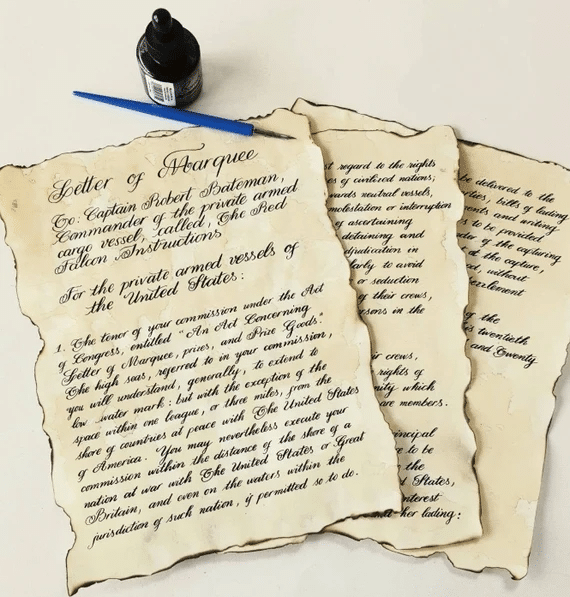 Letter of Marquee
To: Captain Robert Bateman,
Commander of the private armed
cargo vessel, called, The Red
Falcon Instructions
For the private armed vessels of
the United States:
1. The tenor of your commission under the Act
of Congress, entitled "An Act Concerning
Letter of Marquee, prizes, and Prize Goods."
The high seas, referred to in your commission,
you will understand, generally, to extend to
low water mark: but with the exception of the
space within one league, or three miles, from the
shore of countries at peace with The United States
of America. You may nevertheless execute your
commission within the distance of the shore of a
nation at war with The United States or Great
Britain, and even on the waters within the
jurisdiction of such nation, if permitted so to do.
regard to the rights
of civilized nations;
neutral vessels,
molestation or interruption
of ascertaining
detaining and
to avoid
or seduction
of their crews,
in the
crews,
rights of
which
are members.
to be
the
States,
her lading:
be delivered to the
bills of lading
and writing
to be provided
of the capturing
the capture,
without
of the
twentieth
and Twenty